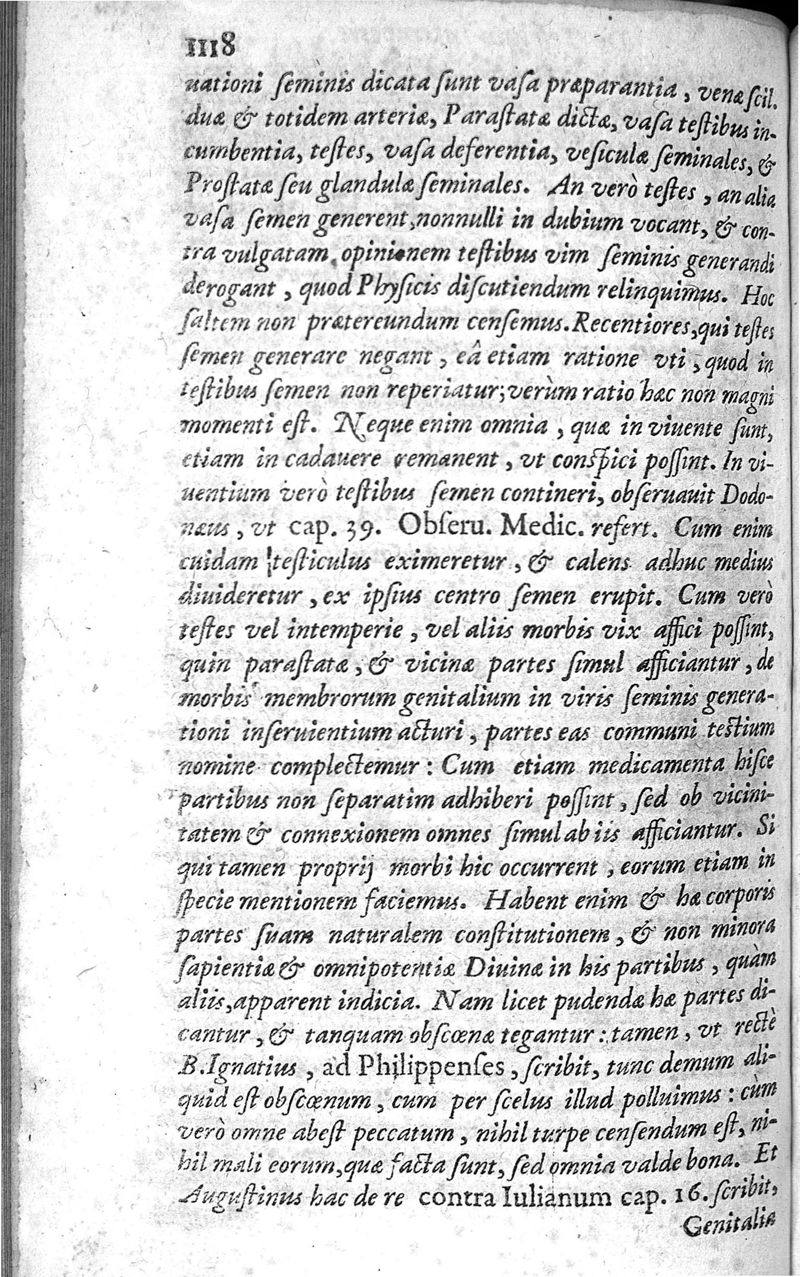 1118
uationi ſeminis dicata ſunt vaſa præparantia, venæ ſcil.
duæ & totidem arteriæ, Paraſtatæ dictæ, vaſa teſtibus in-
cumbentia, teſtes, vaſa deferentia, veſiculæ ſeminales, &
Proſtatæ ſeu glandulæ ſeminales. An verò teſtes, an alia
vaſa ſemen generent, nonnulli in dubium vocant, & con-
tra vulgatam opinionem teſtibus vim ſeminis generandi
derogant, quod Phyſicis diſcutiendum relinquimus. Hoc
ſaltem non prætereundum cenſemus. Recentiores, qui teſtes
ſemen generare negant, eâ etiam ratione vti, quod in
teſtibus ſemen non reperiatur; verùm ratio hæc non magni
momenti eſt. Neque enim omnia, quæ in viuente ſunt,
etiam in cadauere remanent, vt conſpici poſſint. In vi-
uentium verò teſtibus ſemen contineri, obſeruauit Dodo-
næus, vt cap. 39. Obſeru. Medic. refert. Cum enim
cuidam teſticulus eximeretur, & calens adhuc medius
diuideretur, ex ipſius centro ſemen erupit. Cum verò
teſtes vel intemperie, vel aliis morbis vix affici poſſint,
quin paraſtatæ, & vicinæ partes ſimul afficiantur, de
morbis membrorum genitalium in viris ſeminis genera-
tioni inſeruientium acturi, partes eas communi teſtium
nomine complectemur: Cum etiam medicamenta hiſce
partibus non ſeparatim adhiberi poſſint, ſed ob vicini-
tatem & connexionem omnes ſimul ab iis afficiantur. Si
qui tamen proprij morbi hic occurrent, eorum etiam in
ſpecie mentionem faciemus. Habent enim & hæ corporis
partes ſuam naturalem conſtitutionem, & non minora
ſapientiæ & omnipotentiæ Diuinæ in his partibus, quàm
aliis, apparent indicia. Nam licet pudendæ hæ partes di-
cantur, & tanquam obſcœnæ tegantur: tamen, vt rectè
B. Ignatius, ad Philippenſes, ſcribit, tunc demum ali-
quid eſt obſcœnum, cum per ſcelus illud polluimus: cùm
verò omne abeſt peccatum, nihil turpe cenſendum eſt, ni-
hil mali eorum, quæ facta ſunt, ſed omnia valde bona. Et
Auguſtinus hac de re contra Iulianum cap. 16. ſcribit,
Genitalia